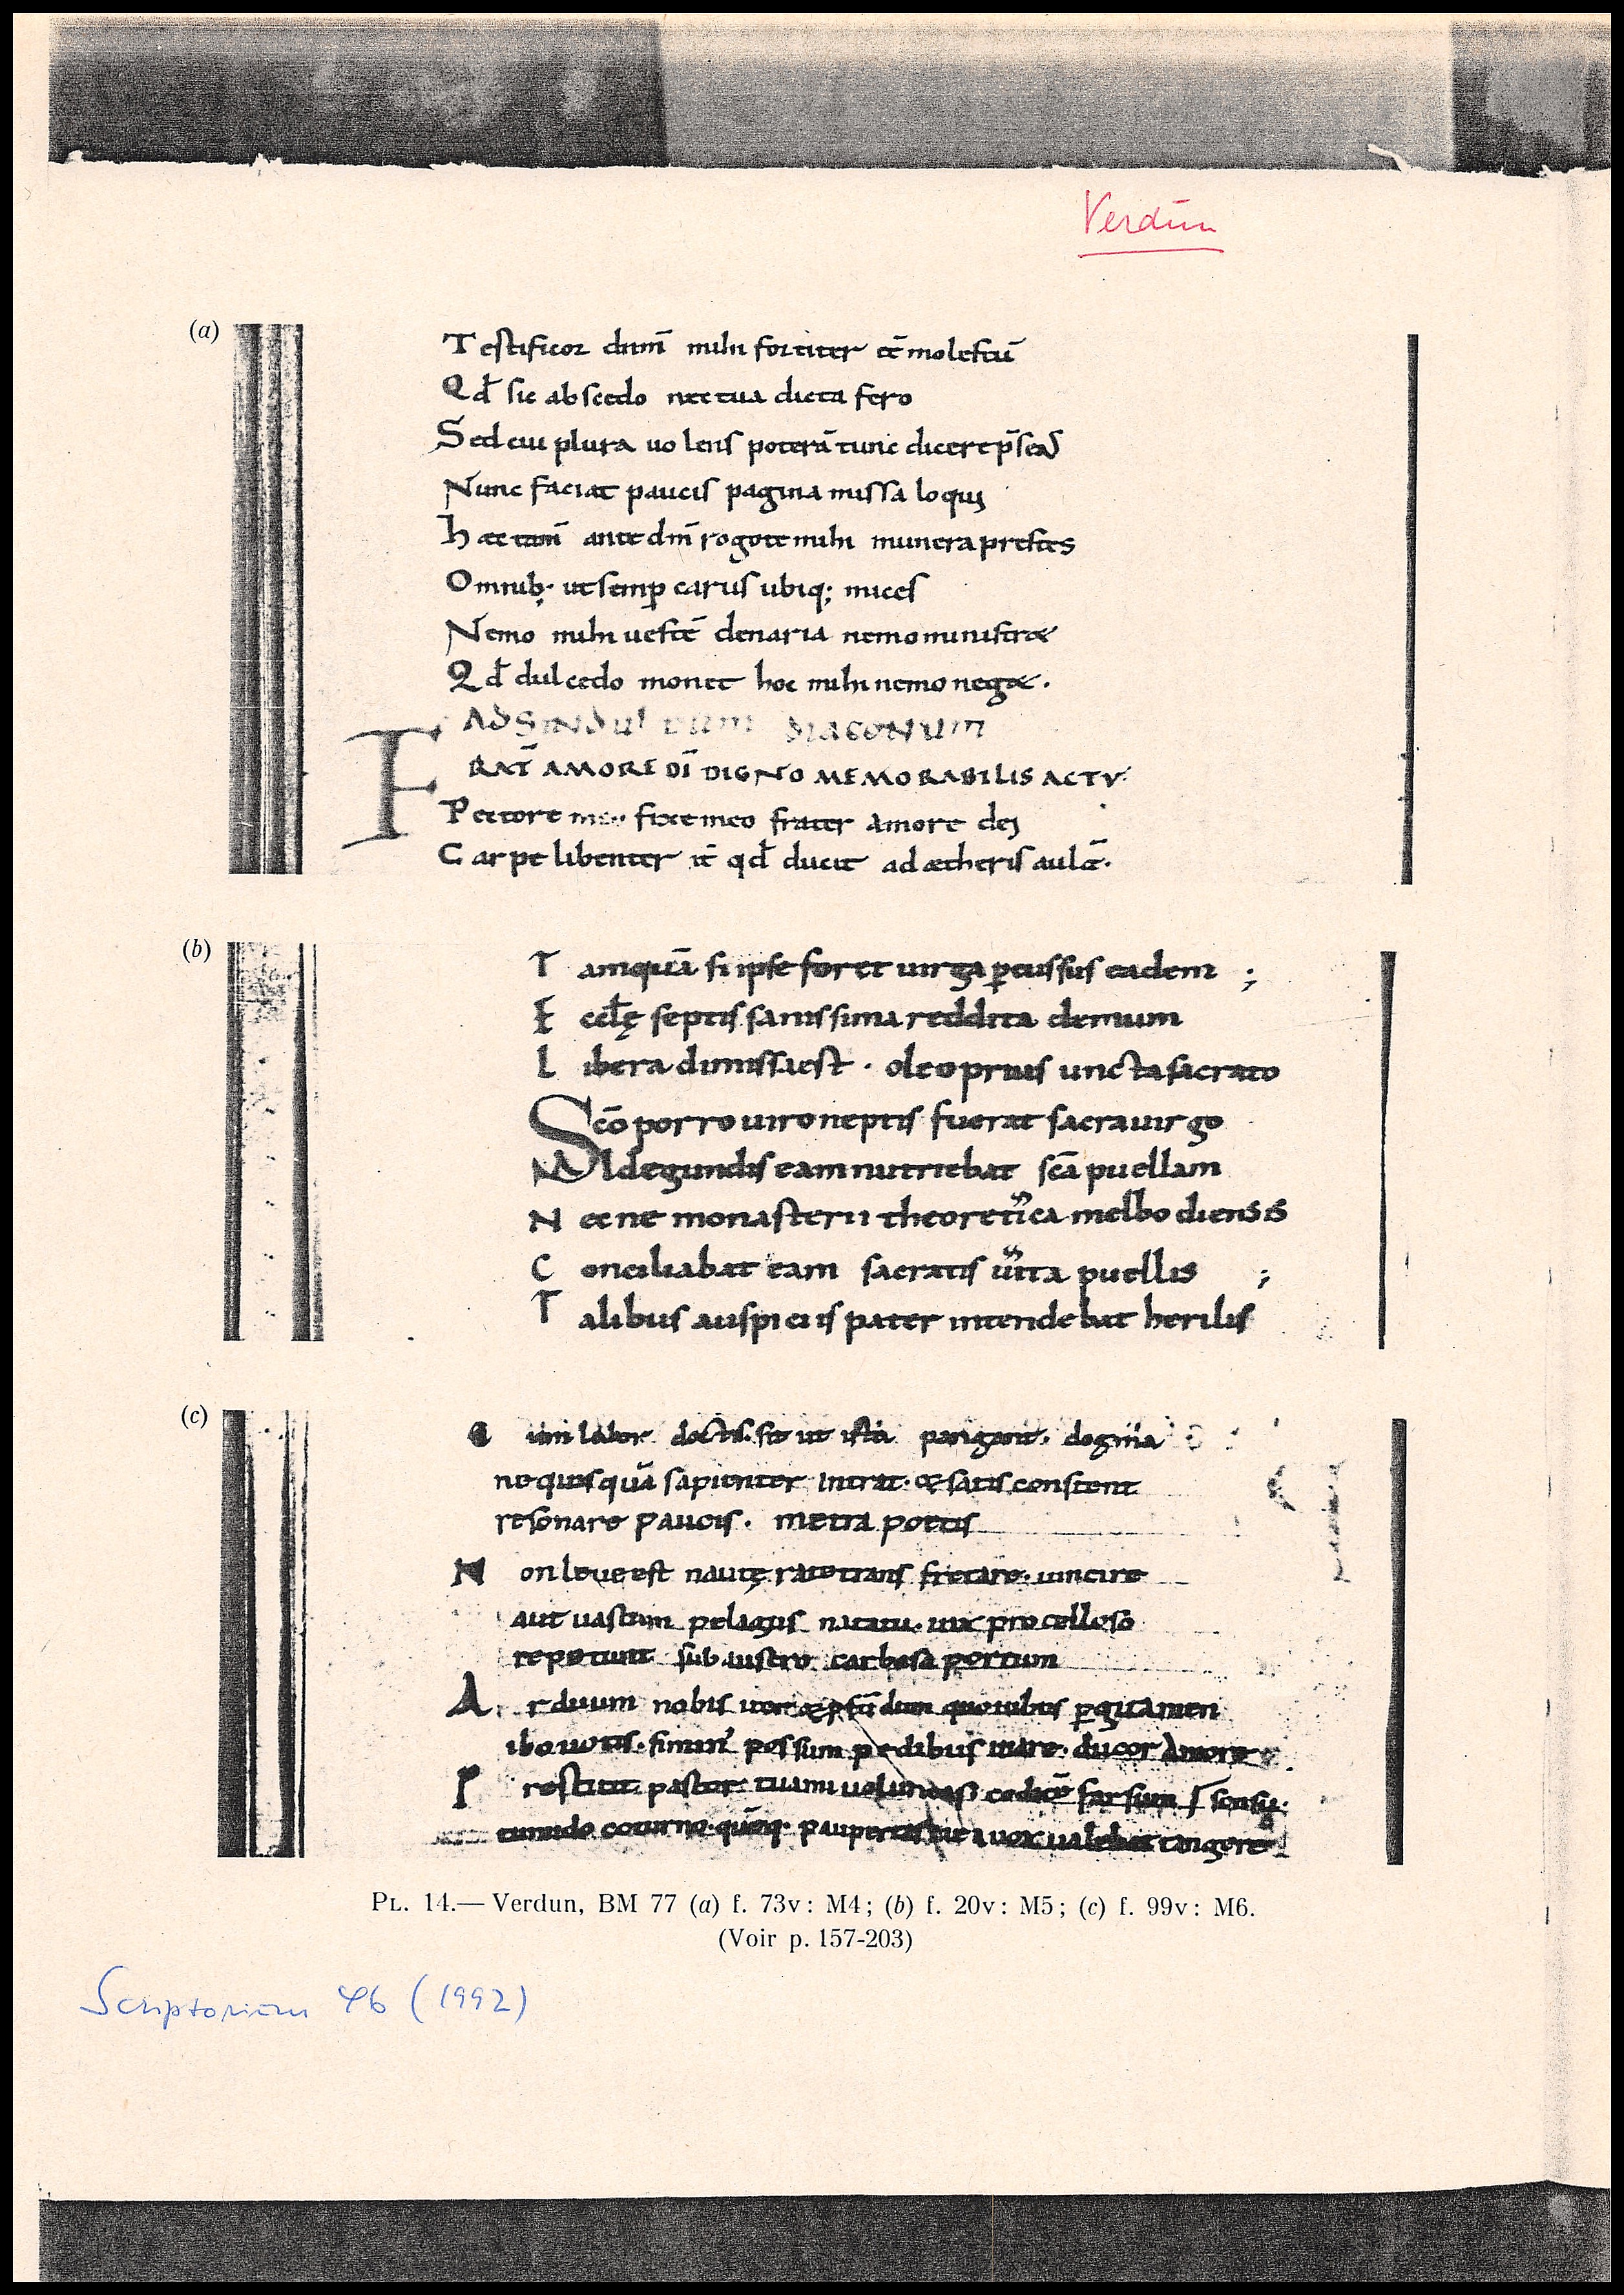 Verdun
(a)
Testificor dnm̄ mihi fortiter eē molestū
Qd̄ sic abscedo nec tua dicta fero
Sed cui plura uolens poterā tunc dicere p̄sens
Nunc faciat paucis pagina missa loqui
haec tam̄ ante dm̄ rogo te mihi munera prestes
Omnib; ut semp carus ubiq; mices
Nemo mihi uestē denaria nemo ministræ
Qd̄ dulcedo monet hoc mihi nemo negæ.
AD SINDUL DIACONUM
FRAT̄ AMORE DI DIGNO MEMORABILIS ACTV
Pectore fixe meo frater amore dei
Carpe libenter it̄ qd̄ ducit ad ætheris aulā.
(b)
Tamquā si ipse foret uirga ꝑcussus eadem ;
E celę septis sanissima reddita demum
Libera dimissa est · oleo prius uncta sacrato
Scō porro uiro neptis fuerat sacra uirgo
Aldegundis eam nutriebat scā puellam
Nec ne monasterii theoretica melbodiensis
Conciliabat eam sacratis uita puellis ;
Talibus auspiciis pater intendebat herilis
(c)
labor doctis. sit ut ista pangant. dogma
ne quisquā sapienter intrat. & satis constent
resonare paucis. metra poetis
Non leue est nautę rate trans fretare. uincire
aut uastum pelagus natatu. uix procelloso
repetunt sub austro carbasa portum
Arduum nobis iter quotibus ꝑgitamen
possum pedibus mare. ducor amore
Prestitit pastor. tua mi uoluntas codicē farsum sensu.
tumido coturno. quēq. paupertas uox ualebat tangere
PL. 14.— Verdun, BM 77 (a) f. 73v: M4; (b) f. 20v: M5; (c) f. 99v: M6.
(Voir p. 157-203)
Scriptorium 46 (1992)